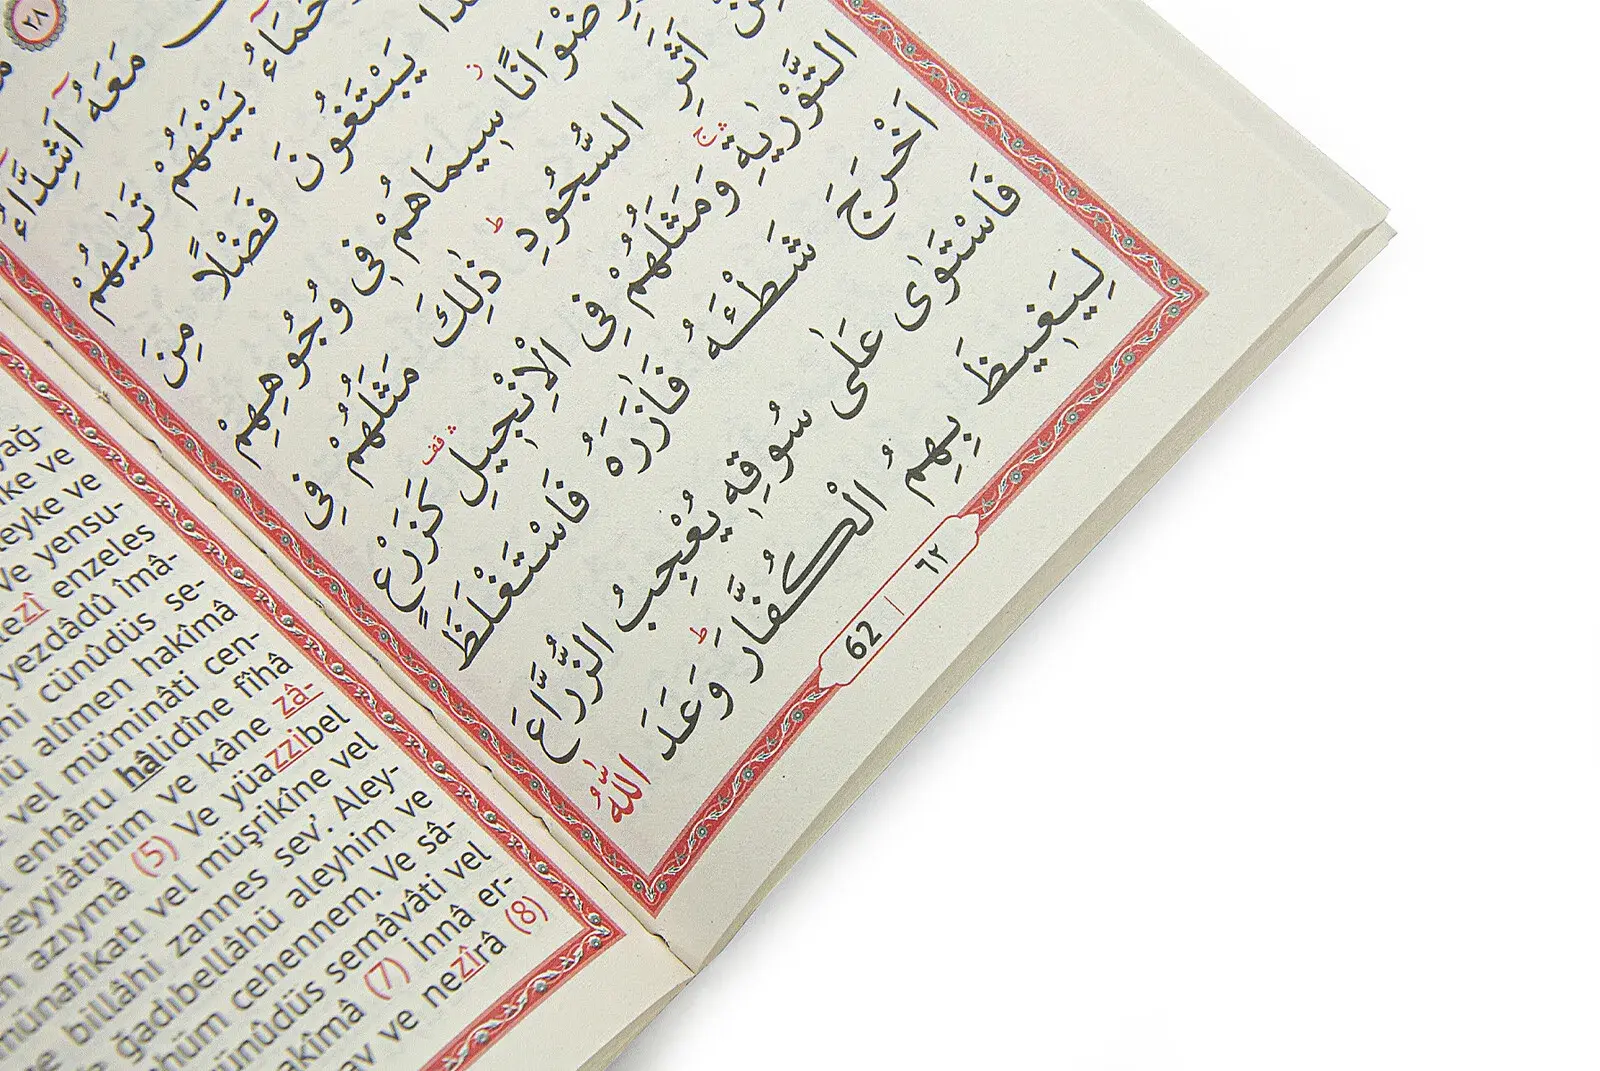 ٢٨
مَعَهُٓ اَشِدَّٓاءُ
بَيْنَهُمْ تَرٰيهُمْ
يَبْتَغُونَ فَضْلًا مِنَ
سِيمَاهُمْ فِى وُجُوهِهِمْ
اَثَرِ السُّجُودِ ط ذٰلِكَ مَثَلُهُمْ فِى
التَّوْرٰيةِ ج وَمَثَلُهُمْ فِى الْاِنْجِيلِ قف كَزَرْعٍ
اَخْرَجَ شَطْـَٔهُ فَاٰزَرَهُ فَاسْتَغْلَظَ
فَاسْتَوٰى عَلٰى سُوقِهِ يُعْجِبُ الزُّرَّاعَ
لِيَغِيظَ بِهِمُ الْكُفَّارَ ط وَعَدَ اللّٰهُ
62 | ٦٢
yağ-
ve
leyke ve
Ve yensu-
enzeles
yezdâdû îmâ-
cünûdüs se-
alîmen hakîmâ
vel mü'minâti cen-
enhâru hâlidîne fîhâ
seyyiâtihim ve kâne zâ-
azıymâ (5) Ve yüazzibel
münafikatı vel müşrikîne vel
billâhi zannes sev'. Aley-
ğadıbellâhü aleyhim ve
hüm cehennem. Ve sâ-
cünûdüs semâvâti vel
hakîmâ (7) İnnâ er-
ve nezîrâ (8)